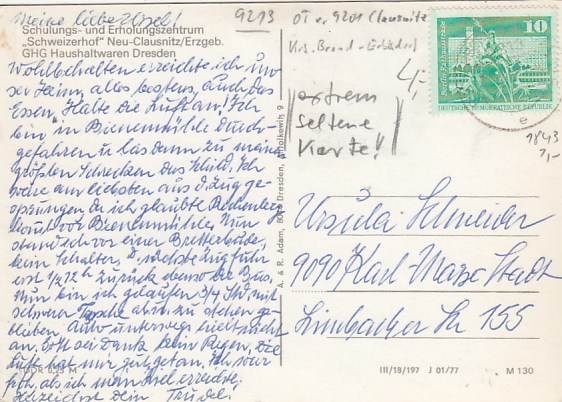 Meine liebe Ursel!
Schulungs- und Erholungszentrum
„Schweizerhof" Neu-Clausnitz/Erzgeb.
GHG Haushaltwaren Dresden
Wohlbehalten erreichte ich un-
ser Heim, alles bestens, auch das
Essen. Halte die Luft an! Ich
bin in Bienenmühle durch-
gefahren u. las dann zu meinem
größten Schrecken das Schild. Ich
wäre am liebsten aus d. Zug ge-
sprungen, da ich glaubte Rechenberg
kommt vor Bienenmühle. Nun
stand ich vor einer Bretterbude,
kein Schalter, d. nächste Zug fuhr
erst 1/2 12h zurück ebenso der Bus.
Nun bin ich gelaufen 3/4 Std. mit
schwerer Tasche ohne zu stehen ge-
blieben. Auto unterwegs hielt nicht
an. Gott sei Dank kein Regen, die
Luft hat mir gut getan. Ich war
froh, als ich mein Ziel erreichte.
Herzlichst Dein Trudel!
DDR 0,25 M
A. & R. Adam, Dresden, 9
9213
OT v. 9201 Clausnitz
Krs. Brand-Erbisdorf
4,-
extrem
seltene
Karte!!
10
DEUTSCHE DEMOKRATISCHE REPUBLIK
e
1843
Ursula Schneider
9090 Karl-Marx-Stadt
Limbacher Str 155
III/18/197 J 01/77
M 130